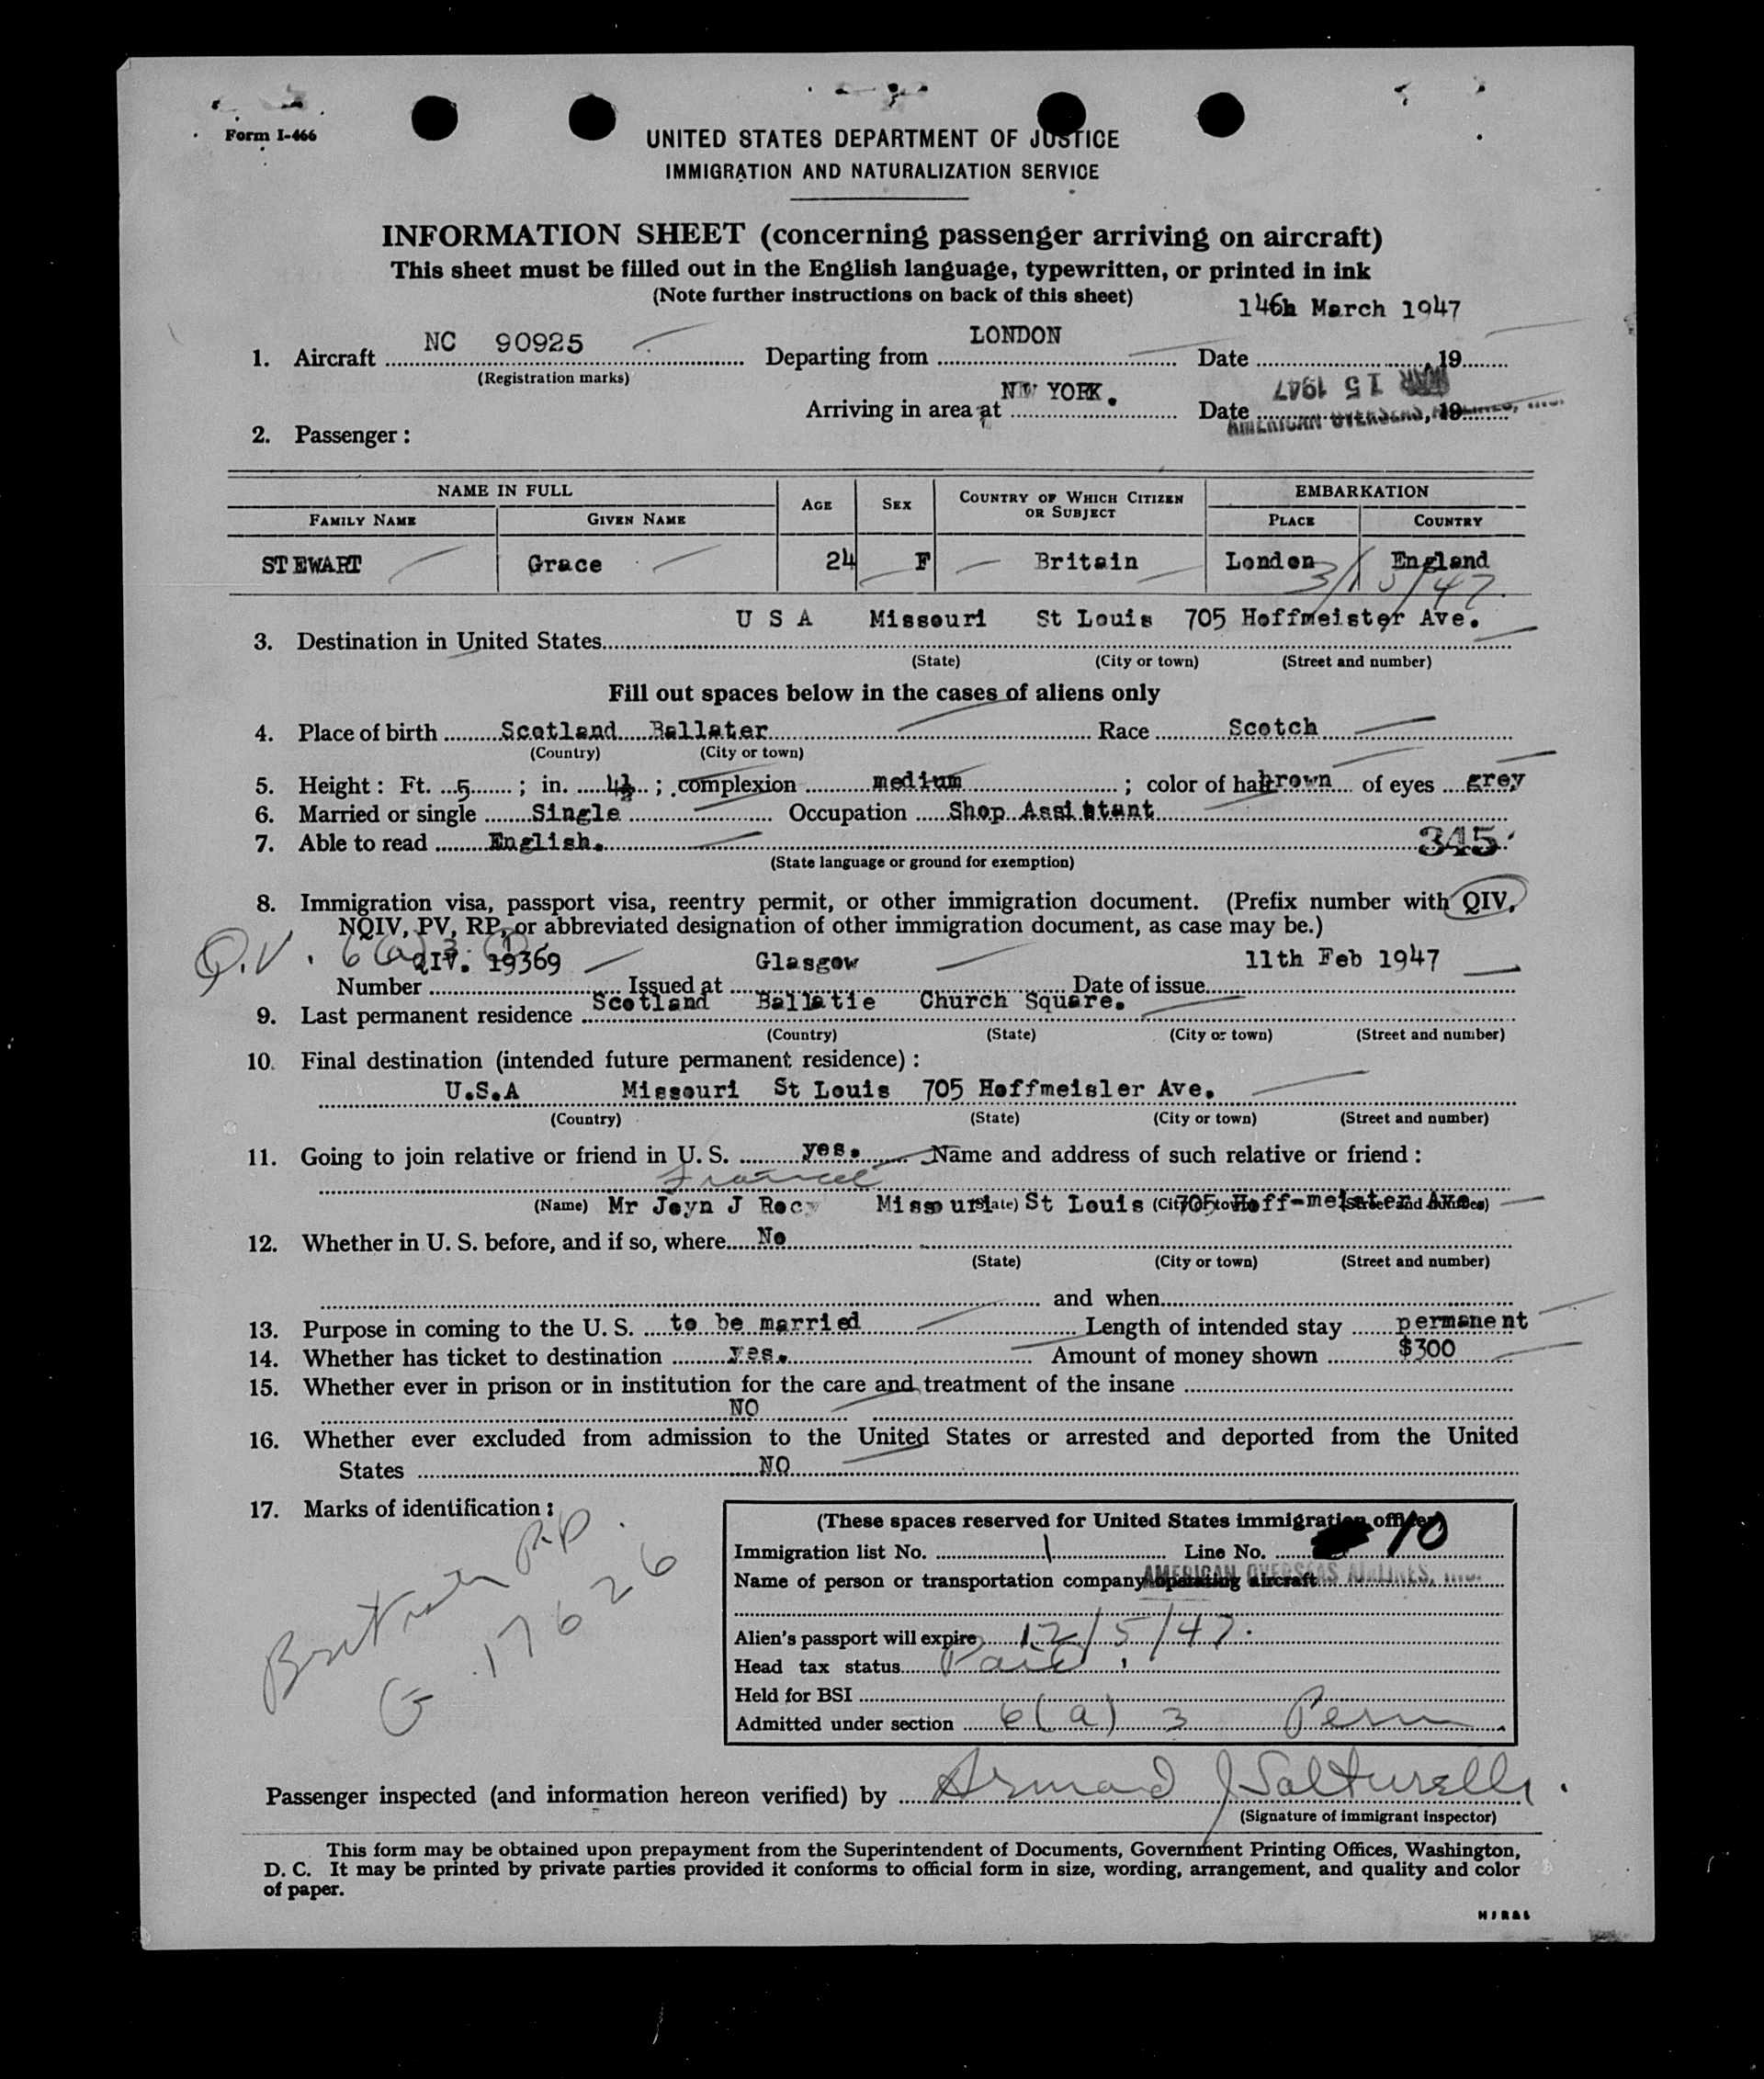 Form I-466
UNITED STATES DEPARTMENT OF JUSTICE
IMMIGRATION AND NATURALIZATION SERVICE
INFORMATION SHEET (concerning passenger arriving on aircraft)
This sheet must be filled out in the English language, typewritten, or printed in ink
(Note further instructions on back of this sheet)
March 1947
1. Aircraft NC 90925 Departing from LONDON Date , 19
(Registration marks)
Arriving in area at YORK. Date MAR 15 1947 , 19
AMERICAN OVERSEAS AIRLINES, INC.
2. Passenger :
NAME IN FULL AGE SEX COUNTRY OF WHICH CITIZEN OR SUBJECT EMBARKATION
FAMILY NAME GIVEN NAME PLACE COUNTRY
STEWART Grace 24 F Britain London England
3/15/47.
3. Destination in United States U S A Missouri St Louis 705 Hoffmeister Ave.
(State) (City or town) (Street and number)
Fill out spaces below in the cases of aliens only
4. Place of birth Scotland Ballater Race Scotch
(Country) (City or town)
5. Height : Ft. 5 ; in. 4½ ; complexion medium ; color of hair brown of eyes grey
6. Married or single Single Occupation Shop Assistant
7. Able to read English. 345
(State language or ground for exemption)
8. Immigration visa, passport visa, reentry permit, or other immigration document. (Prefix number with QIV,
NQIV, PV, RP, or abbreviated designation of other immigration document, as case may be.)
Q.V. 6(a) 3
Number QIV. 19369 Issued at Glasgow Date of issue 11th Feb 1947
9. Last permanent residence Scotland Ballatie Church Square.
(Country) (State) (City or town) (Street and number)
10. Final destination (intended future permanent residence) :
U.S.A Missouri St Louis 705 Hoffmeisler Ave.
(Country) (State) (City or town) (Street and number)
11. Going to join relative or friend in U. S. yes. Name and address of such relative or friend :
(Name) Mr Joyn J (State) St Louis (City or town) 705 Hoff-meister Ave (Street and number)
12. Whether in U. S. before, and if so, where No
(State) (City or town) (Street and number)
and when
13. Purpose in coming to the U. S. to be married Length of intended stay permanent
14. Whether has ticket to destination yes. Amount of money shown $300
15. Whether ever in prison or in institution for the care and treatment of the insane
NO
16. Whether ever excluded from admission to the United States or arrested and deported from the United
States NO
17. Marks of identification :
British P.P.
G 17626
(These spaces reserved for United States immigration officer)
Immigration list No. 1 Line No. 10
Name of person or transportation company operating aircraft AMERICAN OVERSEAS AIRLINES, INC.
Alien's passport will expire 12/5/47.
Head tax status Paid
Held for BSI
Admitted under section 6(a) 3 Perm
Passenger inspected (and information hereon verified) by Armand J
(Signature of immigrant inspector)
This form may be obtained upon prepayment from the Superintendent of Documents, Government Printing Offices, Washington,
D. C. It may be printed by private parties provided it conforms to official form in size, wording, arrangement, and quality and color
of paper.